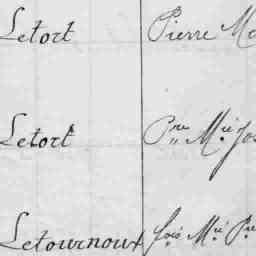 Letort Pierre Ma
Letort Pre Mie Jos
Letournoux fois Mie Pre